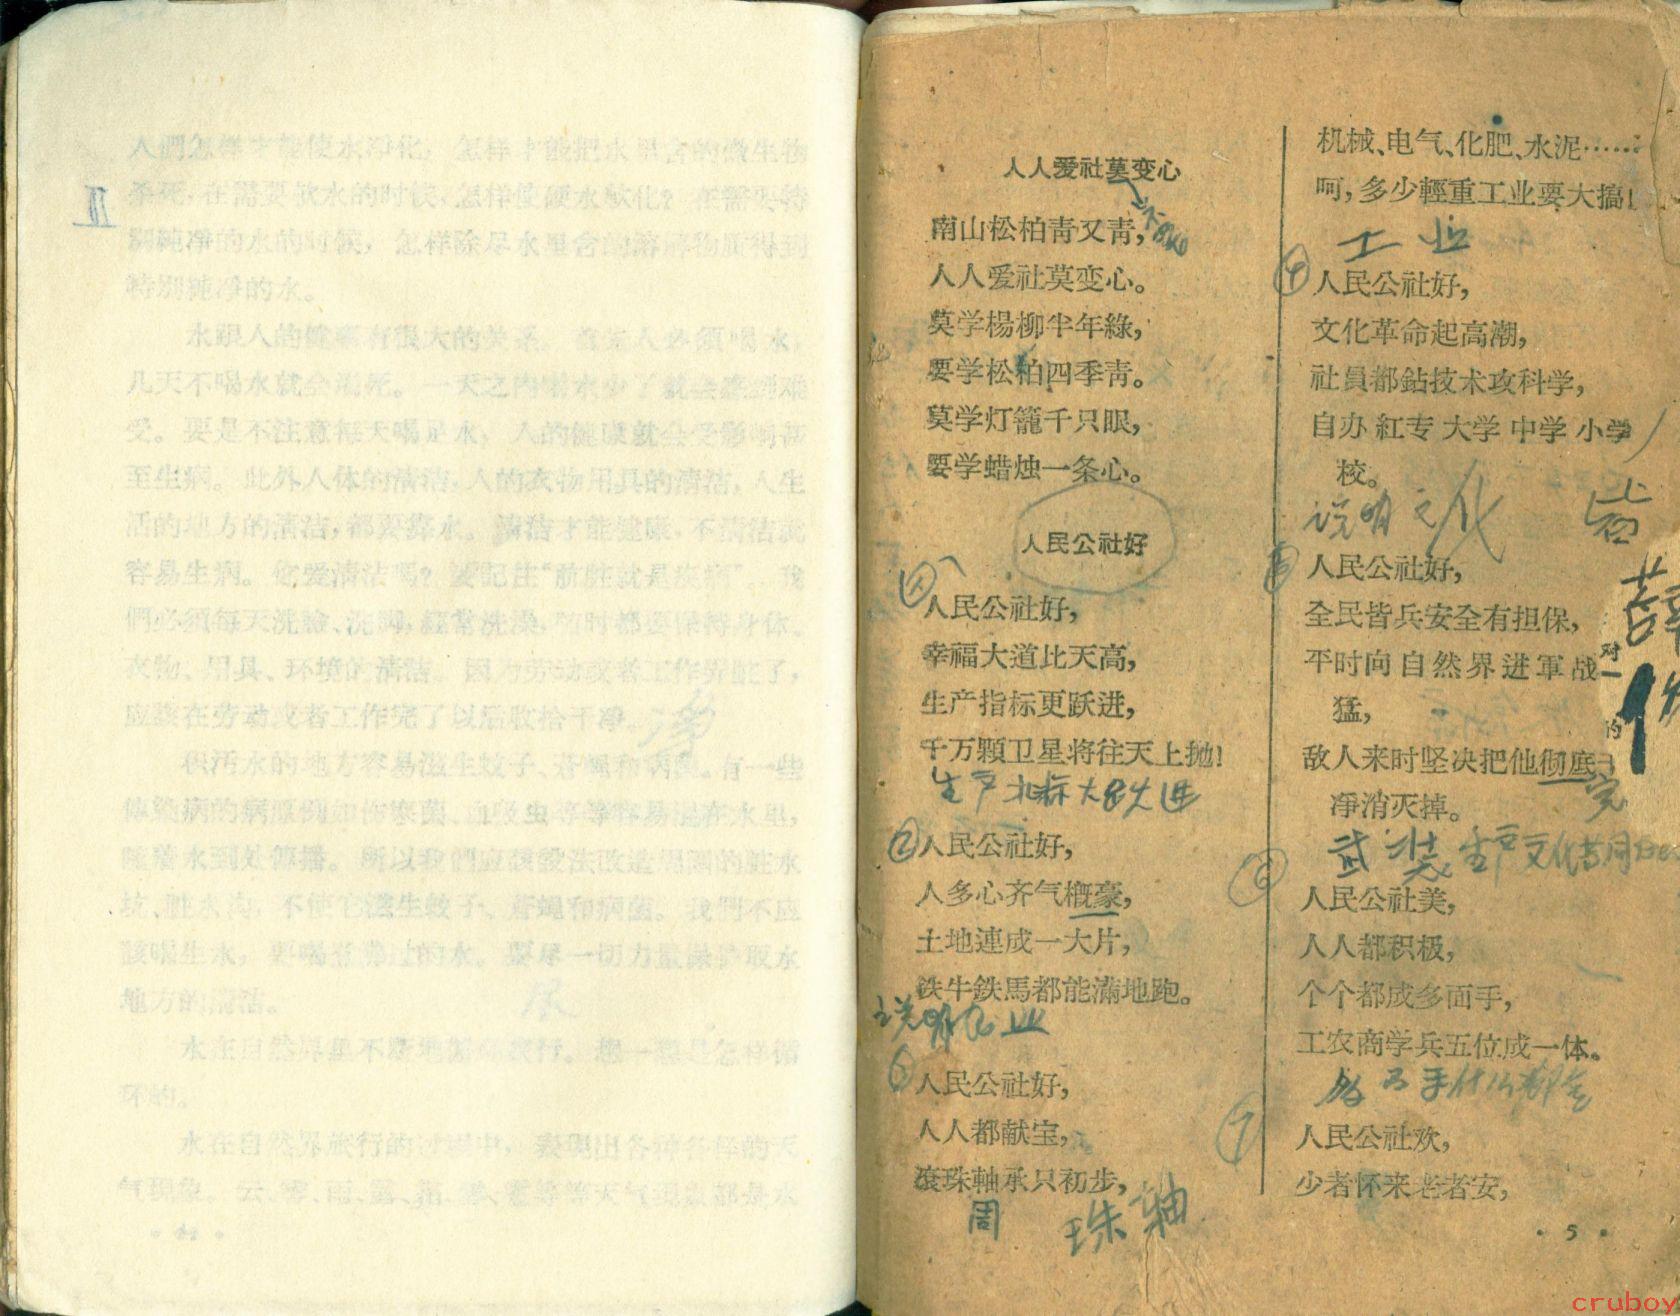 人們怎样才能使水淨化,怎样才能把水里含的微生物
杀死,在需要飲水的时候,怎样使硬水軟化?在需要特
別純淨的水的时候,怎样除尽水里含的溶解物质得到
特別純淨的水。
水跟人的健康有很大的关系。首先人必須喝水,
几天不喝水就会渴死。一天之內喝水少了就会感到难
受。要是不注意每天喝足水,人的健康就会受影响甚
至生病。此外人体的清洁,人的衣物用具的清洁,人生
活的地方的清洁,都要靠水。清洁才能健康,不清洁就
容易生病。您爱清洁嗎?要記住“骯脏就是疾病”。我
們必須每天洗臉、洗脚,經常洗澡,随时都要保持身体、
衣物、用具、环境的清洁。因为劳动或者工作弄脏了,
应該在劳动或者工作完了以后收拾干净。
积汚水的地方容易滋生蚊子、蒼蝇和病菌。有一些
傳染病的病原例如伤寒菌、血吸虫等等容易混在水里,
随着水到处傳播。所以我們应該設法改造周圍的脏水
坑、脏水沟,不使它滋生蚊子、蒼蝇和病菌。我們不应
該喝生水,要喝煮沸过的水。要尽一切力量保护取水
地方的清洁。
水在自然界里不断地循环旅行。想一想是怎样循
环的。
水在自然界旅行的过程中,表現出各种各样的天
气現象。云、雾、雨、露、霜、雪、雹等等天气現象都是水
人人爱社莫变心
南山松柏靑又靑,
人人爱社莫变心。
莫学楊柳半年綠,
要学松柏四季靑。
莫学灯籠千只眼,
要学蜡烛一条心。
人民公社好
人民公社好,
幸福大道比天高,
生产指标更跃进,
千万顆卫星将往天上抛!
生产指标大跃进
②人民公社好,
人多心齐气概豪,
土地連成一大片,
鉄牛鉄馬都能滿地跑。
说明农业
③人民公社好,
人人都献宝,
滾珠軸承只初步,
周 珠 轴
机械、电气、化肥、水泥……
呵,多少輕重工业要大搞!
工业
④人民公社好,
文化革命起高潮,
社員都鉆技术攻科学,
自办 紅专 大学 中学 小学
校。
说明文化
⑤人民公社好,
全民皆兵安全有担保,
平时向自然界进軍战
猛,
敌人来时坚决把他彻底
淨消灭掉。
武装
⑥人民公社美,
人人都积极,
个个都成多面手,
工农商学兵五位成一体。
⑦人民公社欢,
少者怀来老者安,
• 5 •
cruboy